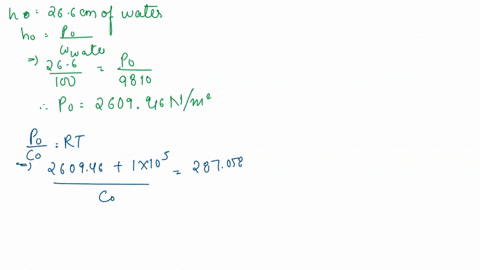 h0 = 26.6 cm of water
h0 = P0 / ωwater
=> 26.6 / 100 = P0 / 9810
∴ P0 = 2609.46 N/m²
P0 / C0 = RT
=> 2609.46 + 1×10⁵ / C0 = 287.058